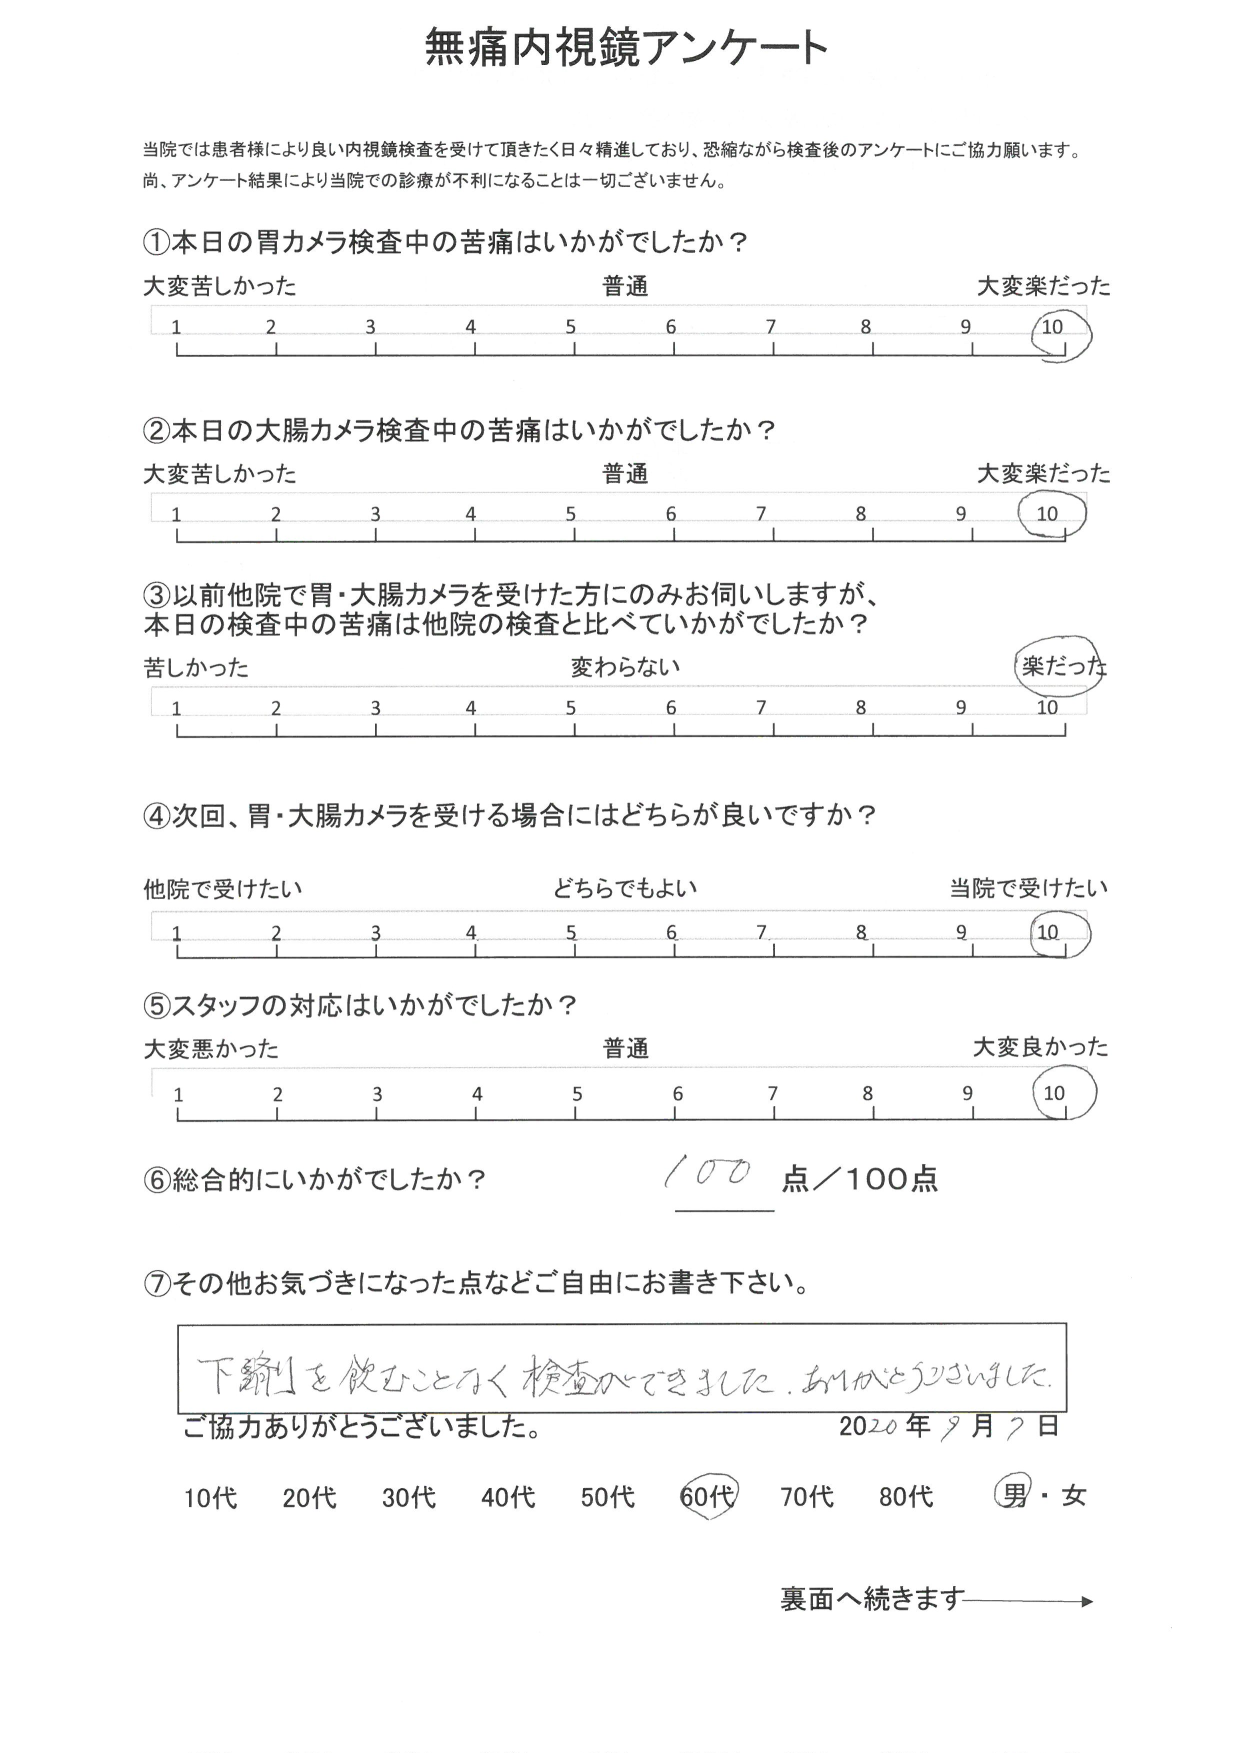 無痛内視鏡アンケート
当院では患者様により良い内視鏡検査を受けて頂きたく日々精進しており、恐縮ながら検査後のアンケートにご協力願います。
尚、アンケート結果により当院での診療が不利になることは一切ございません。
①本日の胃カメラ検査中の苦痛はいかがでしたか？
大変苦しかった 普通 大変楽だった
1 2 3 4 5 6 7 8 9 10
②本日の大腸カメラ検査中の苦痛はいかがでしたか？
大変苦しかった 普通 大変楽だった
1 2 3 4 5 6 7 8 9 10
③以前他院で胃・大腸カメラを受けた方にのみお伺いしますが、
本日の検査中の苦痛は他院の検査と比べていかがでしたか？
苦しかった 変わらない 楽だった
1 2 3 4 5 6 7 8 9 10
④次回、胃・大腸カメラを受ける場合にはどちらが良いですか？
他院で受けたい どちらでもよい 当院で受けたい
1 2 3 4 5 6 7 8 9 10
⑤スタッフの対応はいかがでしたか？
大変悪かった 普通 大変良かった
1 2 3 4 5 6 7 8 9 10
⑥総合的にいかがでしたか？ 100 点／100点
⑦その他お気づきになった点などご自由にお書き下さい。
下剤を飲むことなく検査ができました．ありがとうございました．
ご協力ありがとうございました。 2020年9月7日
10代 20代 30代 40代 50代 60代 70代 80代 男・女
裏面へ続きます